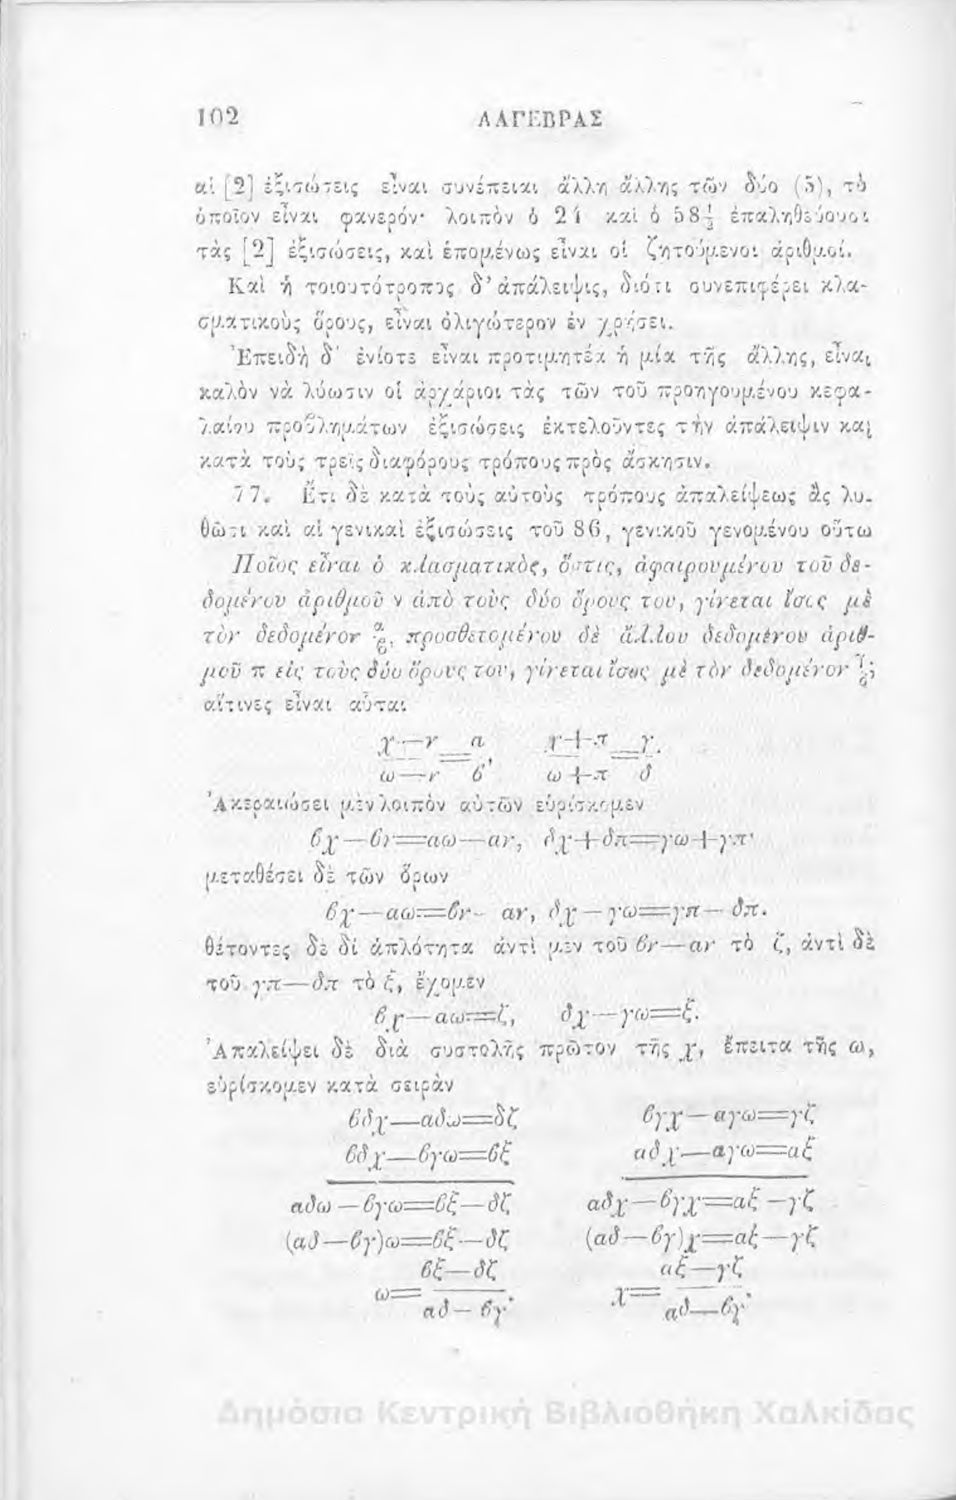 102 ΑΛΓΕΒΡΑΣ
αἱ [2] ἐξισώσεις εἶναι συνέπειαι ἄλλη ἄλλης τῶν δύο (5), τὸ
ὁποῖον εἶναι φανερόν· λοιπὸν ὁ 24 καὶ ὁ 58½ ἐπαληθεύουσι
τὰς [2] ἐξισώσεις, καὶ ἑπομένως εἶναι οἱ ζητούμενοι ἀριθμοί.
Καὶ ἡ τοιουτότροπος δ' ἀπάλειψις, διότι συνεπιφέρει κλα-
σματικοὺς ὅρους, εἶναι ὀλιγώτερον ἐν χρήσει.
Ἐπειδὴ δ' ἐνίοτε εἶναι προτιμητέα ἡ μία τῆς ἄλλης, εἶναι
καλὸν νὰ λύωσιν οἱ ἀρχάριοι τὰς τῶν τοῦ προηγουμένου κεφα-
λαίου προβλημάτων ἐξισώσεις ἐκτελοῦντες τὴν ἀπάλειψιν καὶ
κατὰ τοὺς τρεῖς διαφόρους τρόπους πρὸς ἄσκησιν.
77. Ἔτι δὲ κατὰ τοὺς αὐτοὺς τρόπους ἀπαλείψεως ἂς λυ-
θῶσι καὶ αἱ γενικαὶ ἐξισώσεις τοῦ 86, γενικοῦ γενομένου οὕτω
Ποῖος εἶναι ὁ κλασματικὸς, ὅστις, ἀφαιρουμένου τοῦ δε-
δομένου ἀριθμοῦ ν ἀπὸ τοὺς δύο ὅρους του, γίνεται ἴσος μὲ
τὸν δεδομένον α/β, προσθετομένου δὲ ἄλλου δεδομένου ἀριθ-
μοῦ π εἰς τοὺς δύο ὅρους του, γίνεται ἴσος μὲ τὸν δεδομένον γ/δ;
αἵτινες εἶναι αὗται
χ—ν = α, χ+π = γ.
ω—ν β ω+π δ
Ἀκεραιώσει μὲν λοιπὸν αὐτῶν εὑρίσκομεν
βχ—βν=αω—αν, δχ+δπ=γω+γπ·
μεταθέσει δὲ τῶν ὅρων
βχ—αω=βν—αν, δχ—γω=γπ—δπ.
θέτοντες δὲ δι' ἁπλότητα ἀντὶ μὲν τοῦ βν—αν τὸ ζ, ἀντὶ δὲ
τοῦ γπ—δπ τὸ ξ, ἔχομεν
βχ—αω=ζ, δχ—γω=ξ.
Ἀπαλείψει δὲ διὰ συστολῆς πρῶτον τῆς χ, ἔπειτα τῆς ω,
εὑρίσκομεν κατὰ σειρὰν
βδχ—αδω=δζ βγχ—αγω=γζ
βδχ—βγω=βξ αδχ—αγω=αξ
αδω—βγω=βξ—δζ αδχ—βγχ=αξ—γζ
(αδ—βγ)ω=βξ—δζ (αδ—βγ)χ=αξ—γζ
βξ—δζ αξ—γζ
ω= χ=
αδ—βγ. αδ—βγ.
Δημόσια Κεντρική Βιβλιοθήκη Χαλκίδας